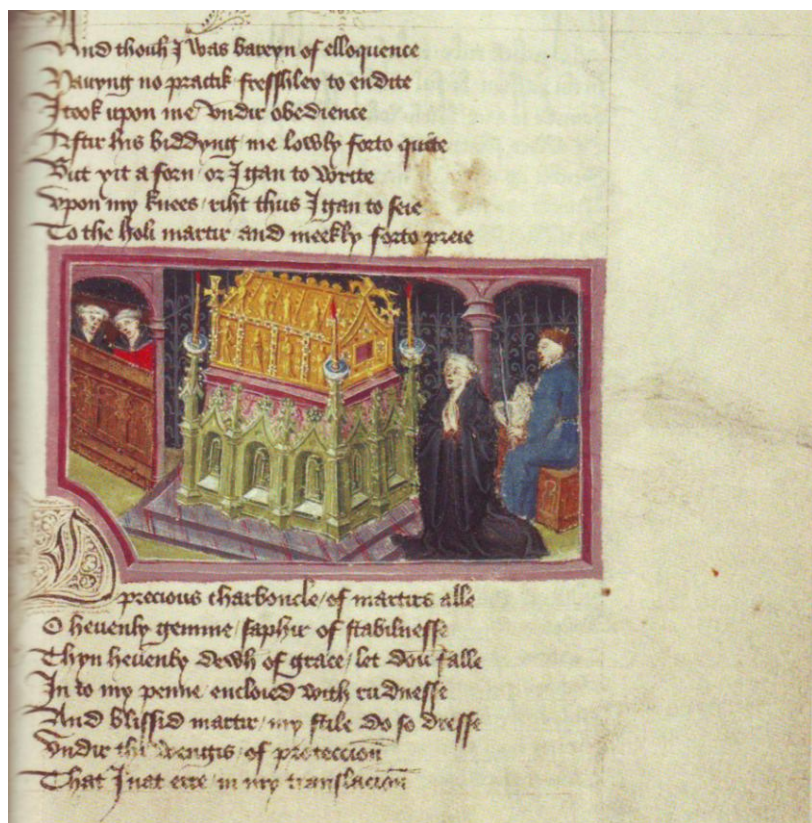 And thouh I was bareyn of elloquence
Havyng no practik fresshley to endite
I took upon me / undir obedience
Aftir his biddyng me lowly forto quite
But yit a forn / or I gan to write
Upon my knees / riht thus I gan to seie
To the holi martir / and meekly forto preie
O precious charboncle / of martirs alle
O hevenly gemme / saphir of stabilnesse
Thyn hevenly dewh of grace / let doun falle
In to my penne / encloied with rudnesse
And blissid martir / my stile do so dresse
Undir thi wengis / of proteccion
That I nat erre / in my translacion